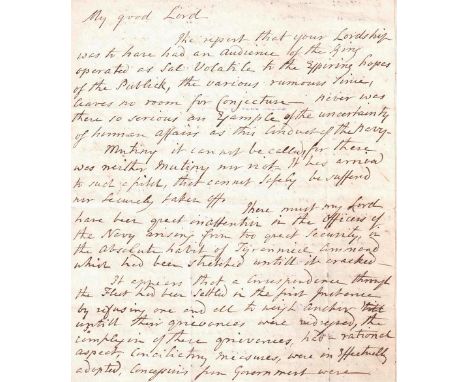 My good Lord
The report that your Lordship
was to have had an Audience of the King
operated as Sal Volatile to the Expiring hopes
of the Publick, the various rumours Since,
leaves no room for Conjecture Never was
there so serious an Example of the uncertainty
of human affairs as this Conduct of the Navy
Mutiny it cannot be called, for there
was neither Mutiny nor riot. It has arrived
to such a pitch, that cannot Safely be suffered
nor Securely taken off.
There must my Lord
have been great inattention in the Officers of
the Navy arising from too great Security, or
the Absolute habit of Tyrannical Command
which had been stretched untill it cracked
It appears that a Correspondence through
the Fleet had been Settled in the first Instance
by refusing one and all to weigh Anchor
untill their grievances were redressed, the
complexion of these grievances, had a rational
aspect, Conciliating measures, were ineffectually
adopted, Concessions from Government were